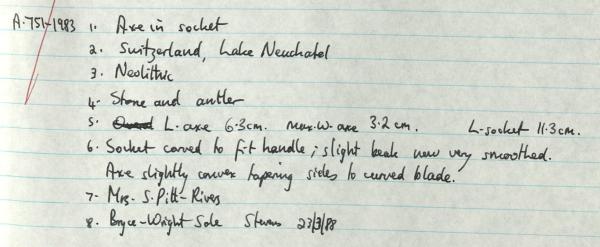 A.751-1983 1. Axe in socket
2. Switzerland, Lake Neuchatel
3. Neolithic
4. Stone and antler
5. L-axe 6.3cm. max.W-axe 3.2 cm. L-socket 11.3cm.
6. Socket carved to fit handle; slight beak now very smoothed.
Axe slightly convex tapering sides to curved blade.
7. Mrs. S. Pitt-Rivers
8. Bryce-Wright Sale Stevens 23/3/88